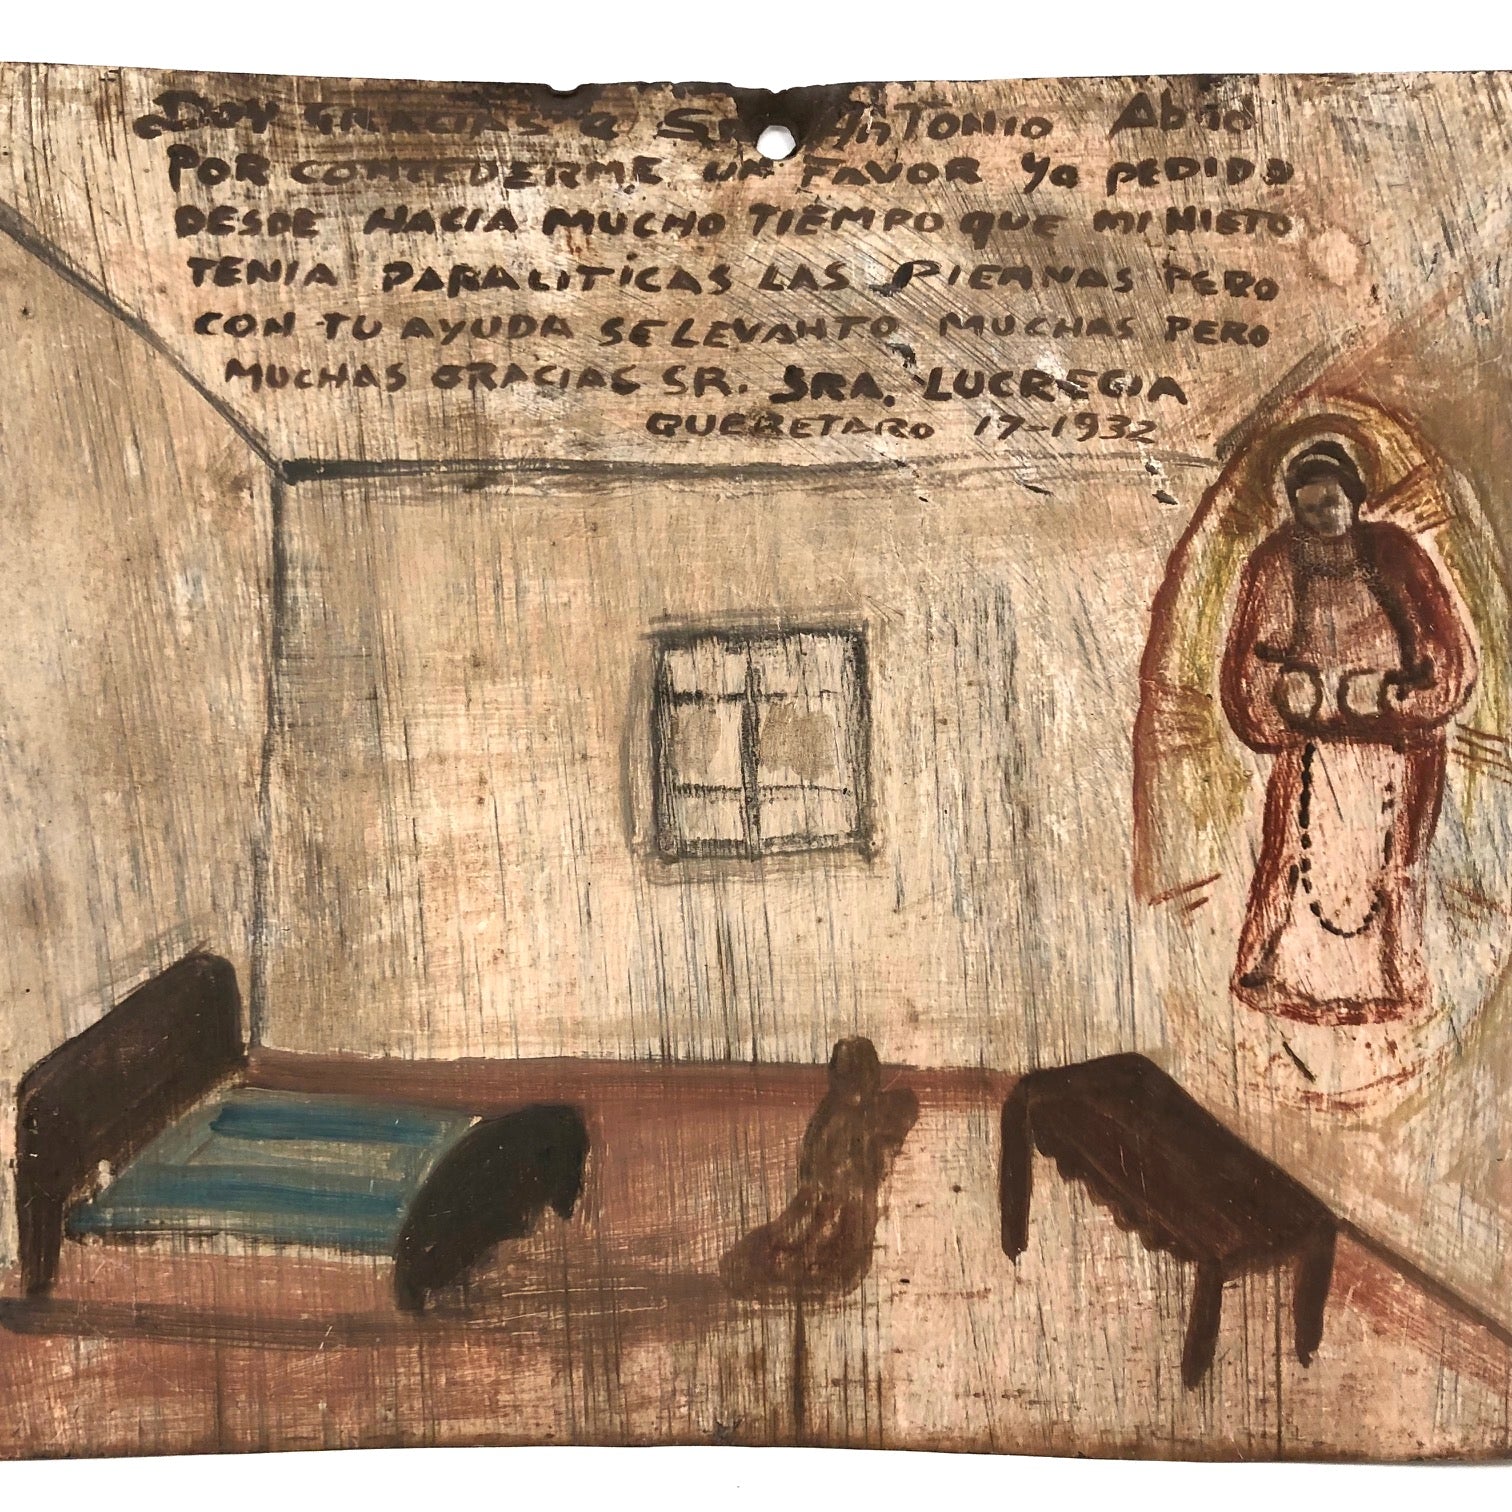 DOY GRACIAS a Sn AnTONIO Abad
POR CONCEDERME UN FAVOR Ya PEDIDO
DESDE HACIA MUCHO TIEMPO QUE MI NIETO
TENIA PARALITICAS LAS PIERNAS PERO
CON TU AYUDA SE LEVANTO MUCHAS PERO
MUCHAS GRACIAS SR. SRA. LUCRECIA
QUERETARO 17-1932